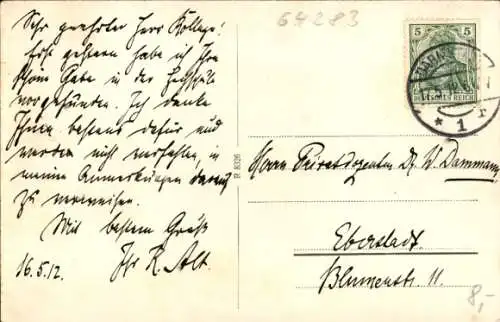 64283
Sehr geehrter Herr Kollege!
Erst gestern habe ich Ihre
schöne Gabe in der Hochschule
vorgefunden. Ich danke
Ihnen bestens dafür und
werde nicht verfehlen, in
meinen Anmerkungen darauf
zu verweisen.
Mit bestem Gruß
Ihr R. Alt.
16.5.12.
R 8326
5 5
DEUTSCHES REICH
* 1 r
Herrn Privatdozenten Dr W. Dammann
Eberstadt.
Blumenstr. 11.
8,-